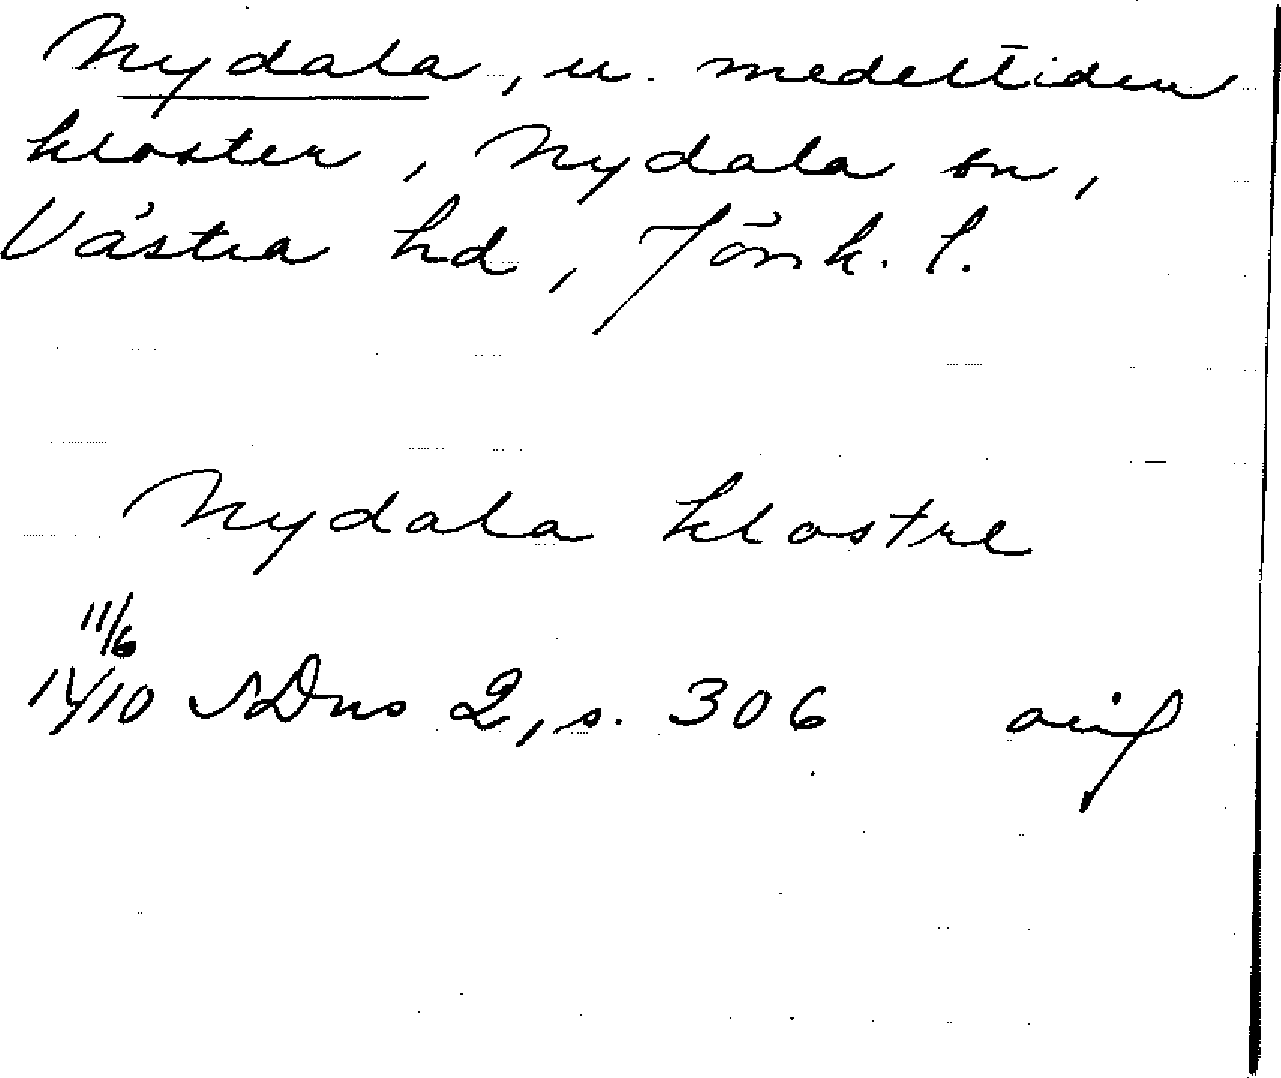 Nydala, u. medeltiden
kloster, Nydala sn,
Västra hd, Jönk. l.
Nydala klostre
11/6
1410 SDns 2, s. 306 avip